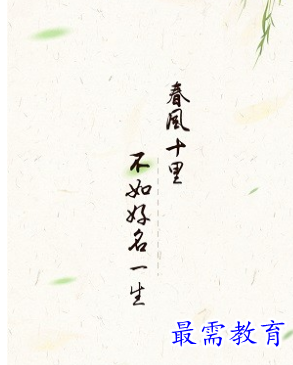 春风十里
不如好名一生
最需教育